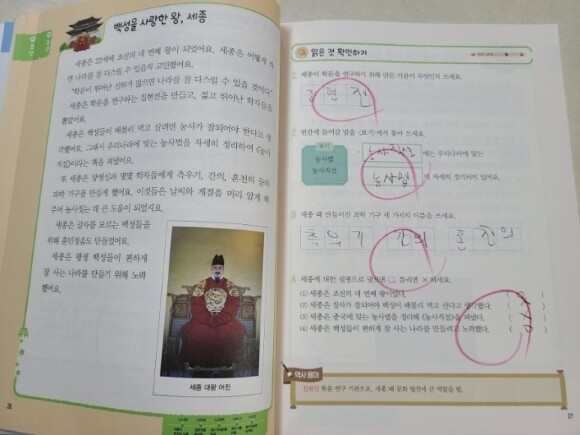 백성을 사랑한 왕, 세종
세종은 22세에 조선의 네 번째 왕이 되었어요. 세종은 어떻게 하
면 나라를 잘 다스릴 수 있을지 고민했어요.
"학문이 뛰어난 신하가 많으면 나라를 잘 다스릴 수 있을 것이다."
세종은 학문을 연구하는 집현전을 만들고, 젊고 뛰어난 학자들을
뽑았어요.
세종은 백성들이 배불리 먹고 살려면 농사가 잘되어야 한다고 생
각했어요. 그래서 우리나라에 맞는 농사법을 자세히 정리하여 《농사
직설》이라는 책을 펴냈어요.
또 세종은 장영실과 몇몇 학자들에게 측우기, 간의, 혼천의 등의
과학 기구를 만들게 했어요. 이것들은 날씨와 계절을 미리 알게 해
주어 농사짓는 데 큰 도움이 되었지요.
세종은 글자를 모르는 백성들을
위해 훈민정음도 만들었어요.
세종은 평생 백성들이 편하게
잘 사는 나라를 만들기 위해 노력
했어요.
세종 대왕 어진
26
읽은 것 확인하기
1 세종이 학문을 연구하기 위해 만든 기관이 무엇인지 쓰세요.
집 현 전
2 빈칸에 들어갈 말을 〈보기〉에서 찾아 쓰세요.
보기
농사법
농사직설
농사직설 에는 우리나라에 맞는
농사법 이 자세히 정리되어 있어요.
3 세종 때 만들어진 과학 기구 세 가지의 이름을 쓰세요.
측 우 기 간 의 혼 천 의
4 세종에 대한 설명으로 맞으면 ○, 틀리면 × 하세요.
(1) 세종은 조선의 네 번째 왕이었다.
(2) 세종은 장사가 잘되어야 백성이 배불리 먹고 산다고 생각했다.
(3) 세종은 중국에 맞는 농사법을 정리해 《농사직설》을 펴냈다.
(4) 세종은 백성들이 편하게 잘 사는 나라를 만들려고 노력했다.
역사 용어
집현전 학문 연구 기관으로, 세종 때 문화 발전에 큰 역할을 함.
27